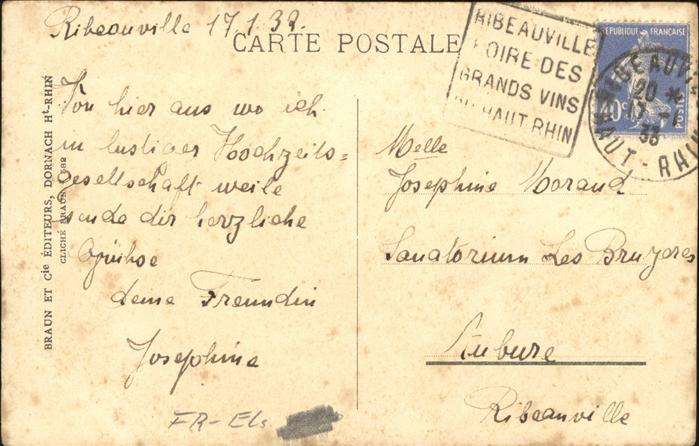 Ribeauville 17.1.33.
CARTE POSTALE
RIBEAUVILLE
FOIRE DES
GRANDS VINS
DU HAUT-RHIN
REPUBLIQUE FRANÇAISE
40c
POSTES
RIBEAUVILLE
20
17-1
33
HAUT-RHIN
BRAUN ET Cie ÉDITEURS, DORNACH Ht-RHIN
CLICHÉ BRAUN
Von hier aus wo ich
in lustiger Hochzeits=
gesellschaft weile
sende dir herzliche
Grüsse
deine Freundin
Josephine
Melle
Josephine Morand
Sanatorium Les Bruyeres
Aubure
Ribeauville
FR-Els